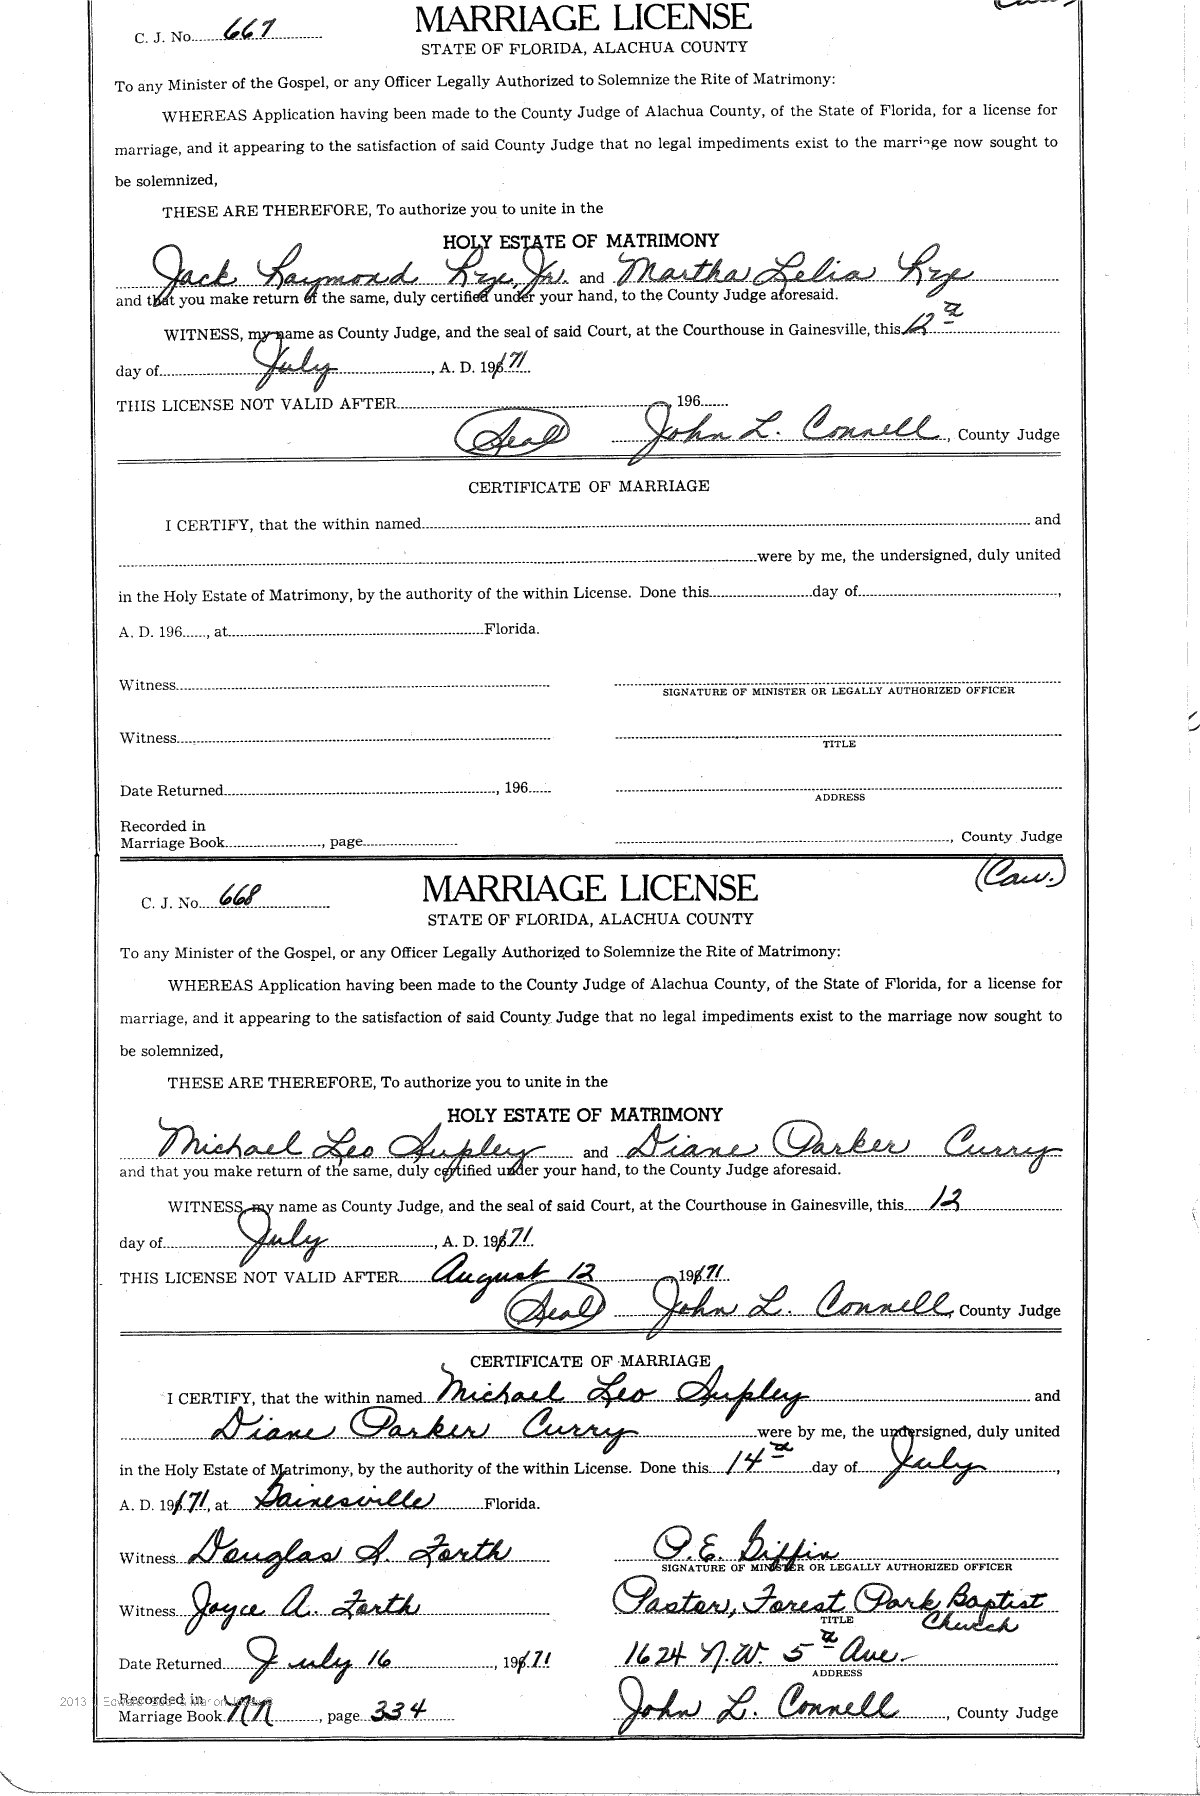 C. J. No. 667
MARRIAGE LICENSE
STATE OF FLORIDA, ALACHUA COUNTY
To any Minister of the Gospel, or any Officer Legally Authorized to Solemnize the Rite of Matrimony:
WHEREAS Application having been made to the County Judge of Alachua County, of the State of Florida, for a license for
marriage, and it appearing to the satisfaction of said County Judge that no legal impediments exist to the marriage now sought to
be solemnized,
THESE ARE THEREFORE, To authorize you to unite in the
HOLY ESTATE OF MATRIMONY
Jack Raymond Rye, Jr. and Martha Lelia Rye
and that you make return of the same, duly certified under your hand, to the County Judge aforesaid.
WITNESS, my name as County Judge, and the seal of said Court, at the Courthouse in Gainesville, this 12
day of July, A. D. 1971
THIS LICENSE NOT VALID AFTER , 196
(Seal) John L. Connell, County Judge
CERTIFICATE OF MARRIAGE
I CERTIFY, that the within named and
were by me, the undersigned, duly united
in the Holy Estate of Matrimony, by the authority of the within License. Done this day of ,
A. D. 196 , at Florida.
Witness
SIGNATURE OF MINISTER OR LEGALLY AUTHORIZED OFFICER
Witness
TITLE
Date Returned , 196
ADDRESS
Recorded in
Marriage Book , page , County Judge
(Cau.)
C. J. No. 668
MARRIAGE LICENSE
STATE OF FLORIDA, ALACHUA COUNTY
To any Minister of the Gospel, or any Officer Legally Authorized to Solemnize the Rite of Matrimony:
WHEREAS Application having been made to the County Judge of Alachua County, of the State of Florida, for a license for
marriage, and it appearing to the satisfaction of said County Judge that no legal impediments exist to the marriage now sought to
be solemnized,
THESE ARE THEREFORE, To authorize you to unite in the
HOLY ESTATE OF MATRIMONY
Michael Leo Supley and Diane Parker Curry
and that you make return of the same, duly certified under your hand, to the County Judge aforesaid.
WITNESS, my name as County Judge, and the seal of said Court, at the Courthouse in Gainesville, this 12
day of July, A. D. 1971.
THIS LICENSE NOT VALID AFTER August 12 1971
(Seal) John L. Connell, County Judge
CERTIFICATE OF MARRIAGE
I CERTIFY, that the within named Michael Leo Supley and
Diane Parker Curry were by me, the undersigned, duly united
in the Holy Estate of Matrimony, by the authority of the within License. Done this 14 day of July,
A. D. 1971, at Gainesville Florida.
Witness Douglas A. Forth P.E. Giffin
SIGNATURE OF MINISTER OR LEGALLY AUTHORIZED OFFICER
Witness Joyce A. Forth Pastor, Forest Park Baptist
TITLE Church
Date Returned July 16, 1971 1624 N.W. 5 Ave.
ADDRESS
Recorded in
Marriage Book NN, page 334 John L. Connell, County Judge
2013